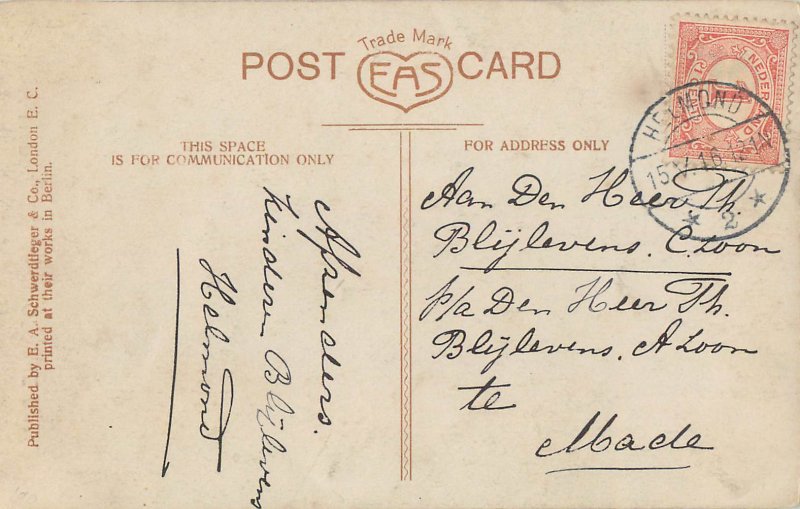 Trade Mark
POST EAS CARD
THIS SPACE
IS FOR COMMUNICATION ONLY
FOR ADDRESS ONLY
Published by E. A. Schwerdtfeger & Co., London E. C.
printed at their works in Berlin.
Afzenders.
kinderen Blijlevens
Helmond
HELMOND
2
NEDERLAND
Aan Den Heer Th.
Blijlevens. C.zoon
p/a Den Heer Th.
Blijlevens. A zoon
te
Made